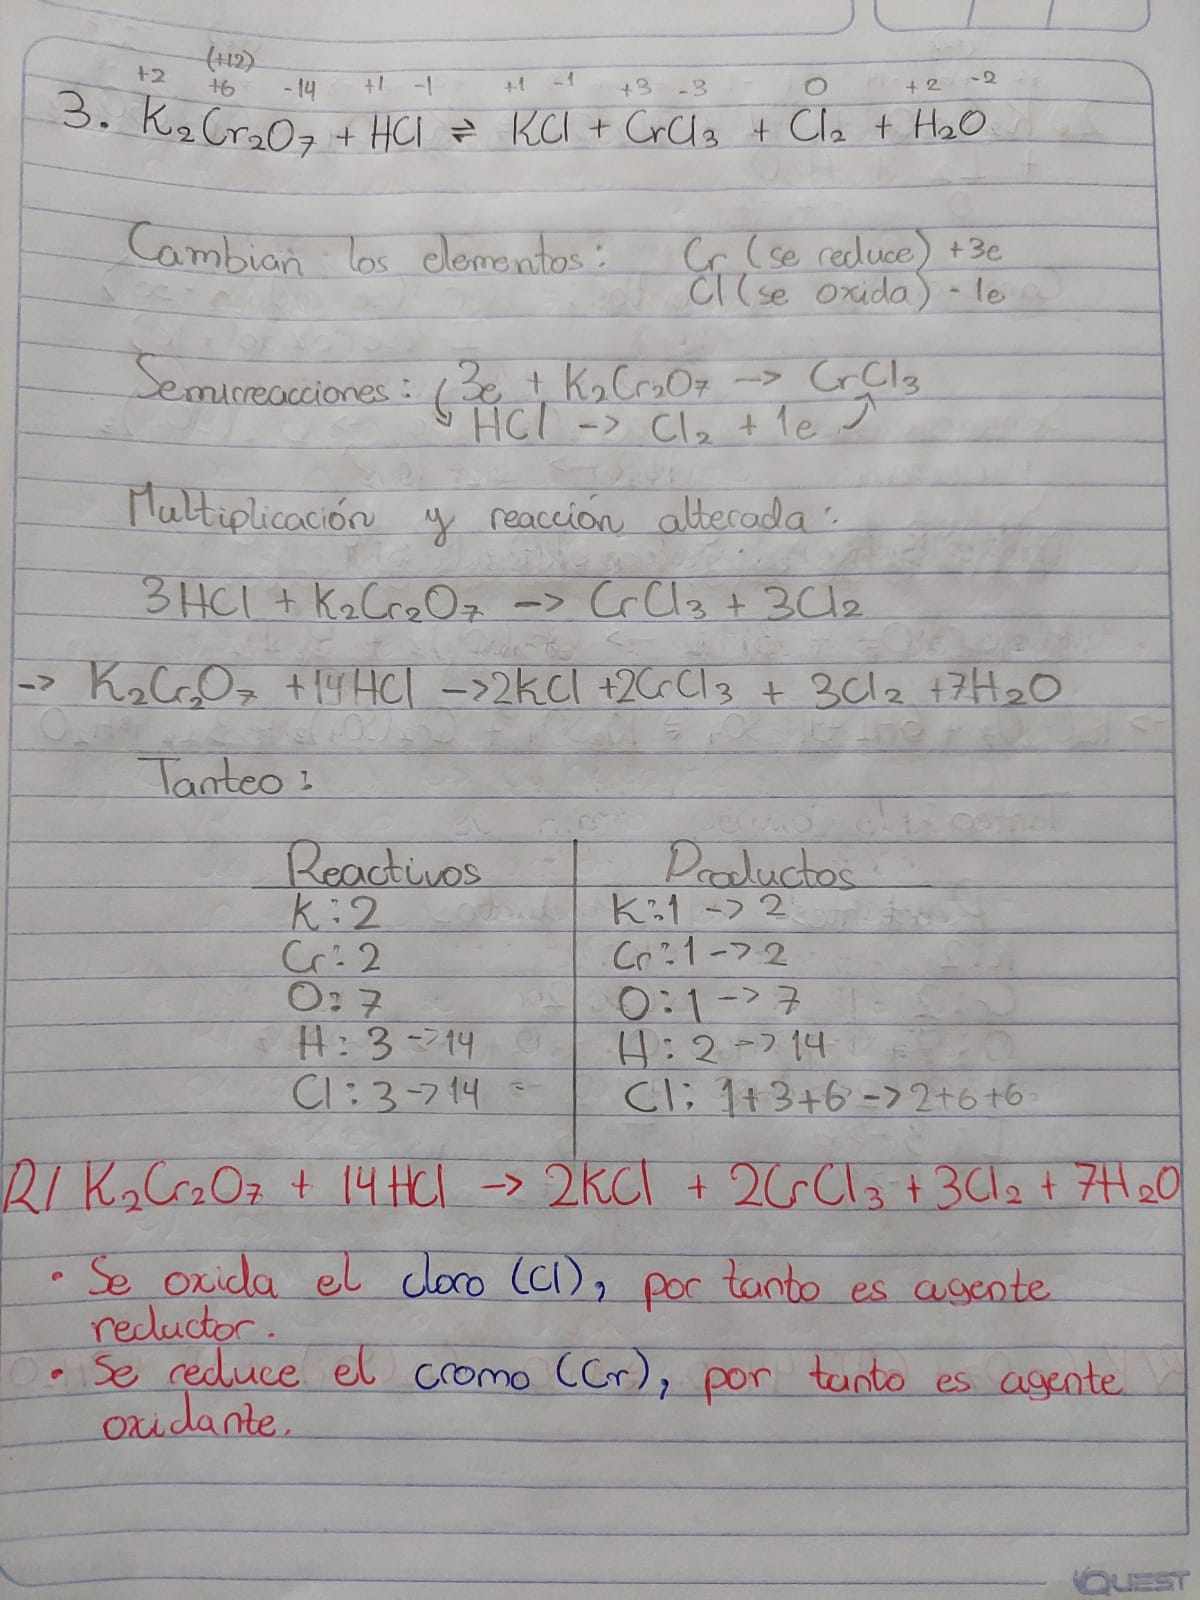 (+12)
+2 +6 -14 +1 -1 +1 -1 +3 -3 0 +2 -2
3. K₂Cr₂O₇ + HCl ⇌ KCl + CrCl₃ + Cl₂ + H₂O
Cambian los elementos: Cr (se reduce) +3e
Cl (se oxida) - 1e
Semirreacciones: 3e + K₂Cr₂O₇ -> CrCl₃
HCl -> Cl₂ + 1e
Multiplicación y reacción alterada:
3HCl + K₂Cr₂O₇ -> CrCl₃ + 3Cl₂
-> K₂Cr₂O₇ + 14HCl -> 2KCl + 2CrCl₃ + 3Cl₂ + 7H₂O
Tanteo:
Reactivos Productos
K: 2 K: 1 -> 2
Cr: 2 Cr: 1 -> 2
O: 7 O: 1 -> 7
H: 3 -> 14 H: 2 -> 14
Cl: 3 -> 14 Cl: 1+3+6 -> 2+6+6
R/ K₂Cr₂O₇ + 14HCl -> 2KCl + 2CrCl₃ + 3Cl₂ + 7H₂O
• Se oxida el cloro (Cl), por tanto es agente
reductor.
• Se reduce el cromo (Cr), por tanto es agente
oxidante.
QUEST